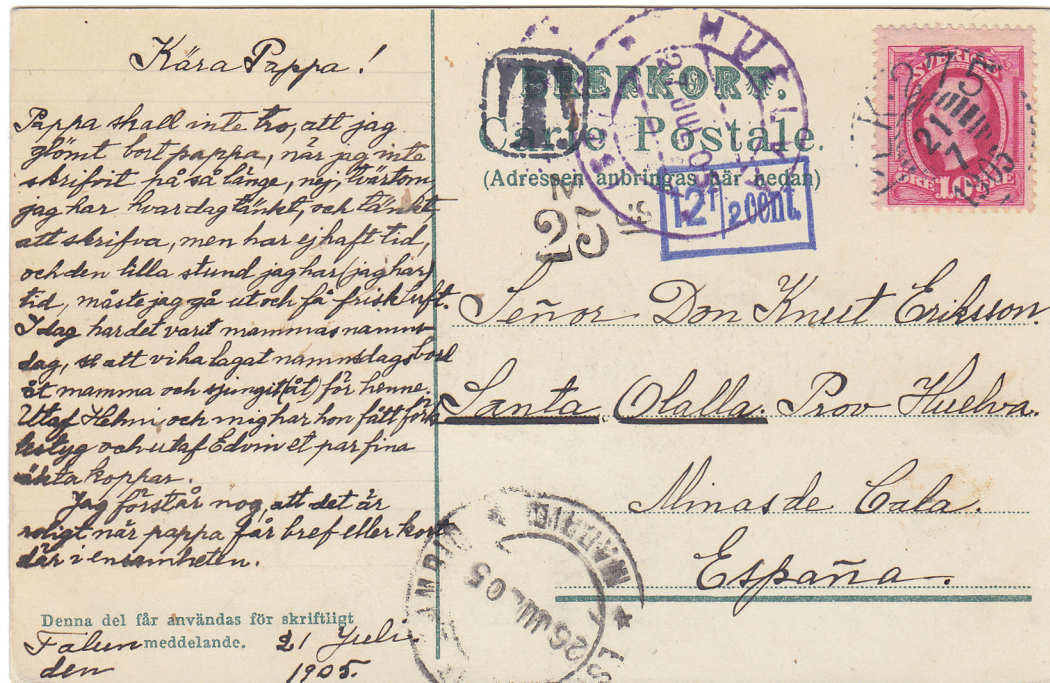 Kära Pappa!
Pappa skall inte tro, att jag
glömt bort pappa, när jag inte
skrifvit på så länge, nej, tvärtom
jag har hvar dag tänkt, och tänkt
att skrifva, men har ej haft tid,
och den lilla stund jag har (jag har)
tid, måste jag gå ut och få frisk luft.
I dag har det varit mammas namns-
dag, så att vi ha lagat namnsdagsbord
åt mamma och sjungit (åt) för henne.
Utaf Helmi och mig har hon fått
och utaf Edvin et par fina
äkta koppar.
Jag förstår nog, att det är
roligt när pappa får bref eller kort
där i ensamheten.
Denna del får användas för skriftligt
meddelande.
Falun 21 Juli
den 1905.
BREFKORT.
Carte Postale.
(Adressen anbringas här nedan)
T
N
25
12 1/2 cent.
HUELVA
21 JUL 05
SVERIGE
10
PKXP 275
21 7 1905
Señor Don Knut Eriksson.
Santa Olalla. Prov Huelva.
Minas de Cala.
España.
MADRID
26 JUL 05